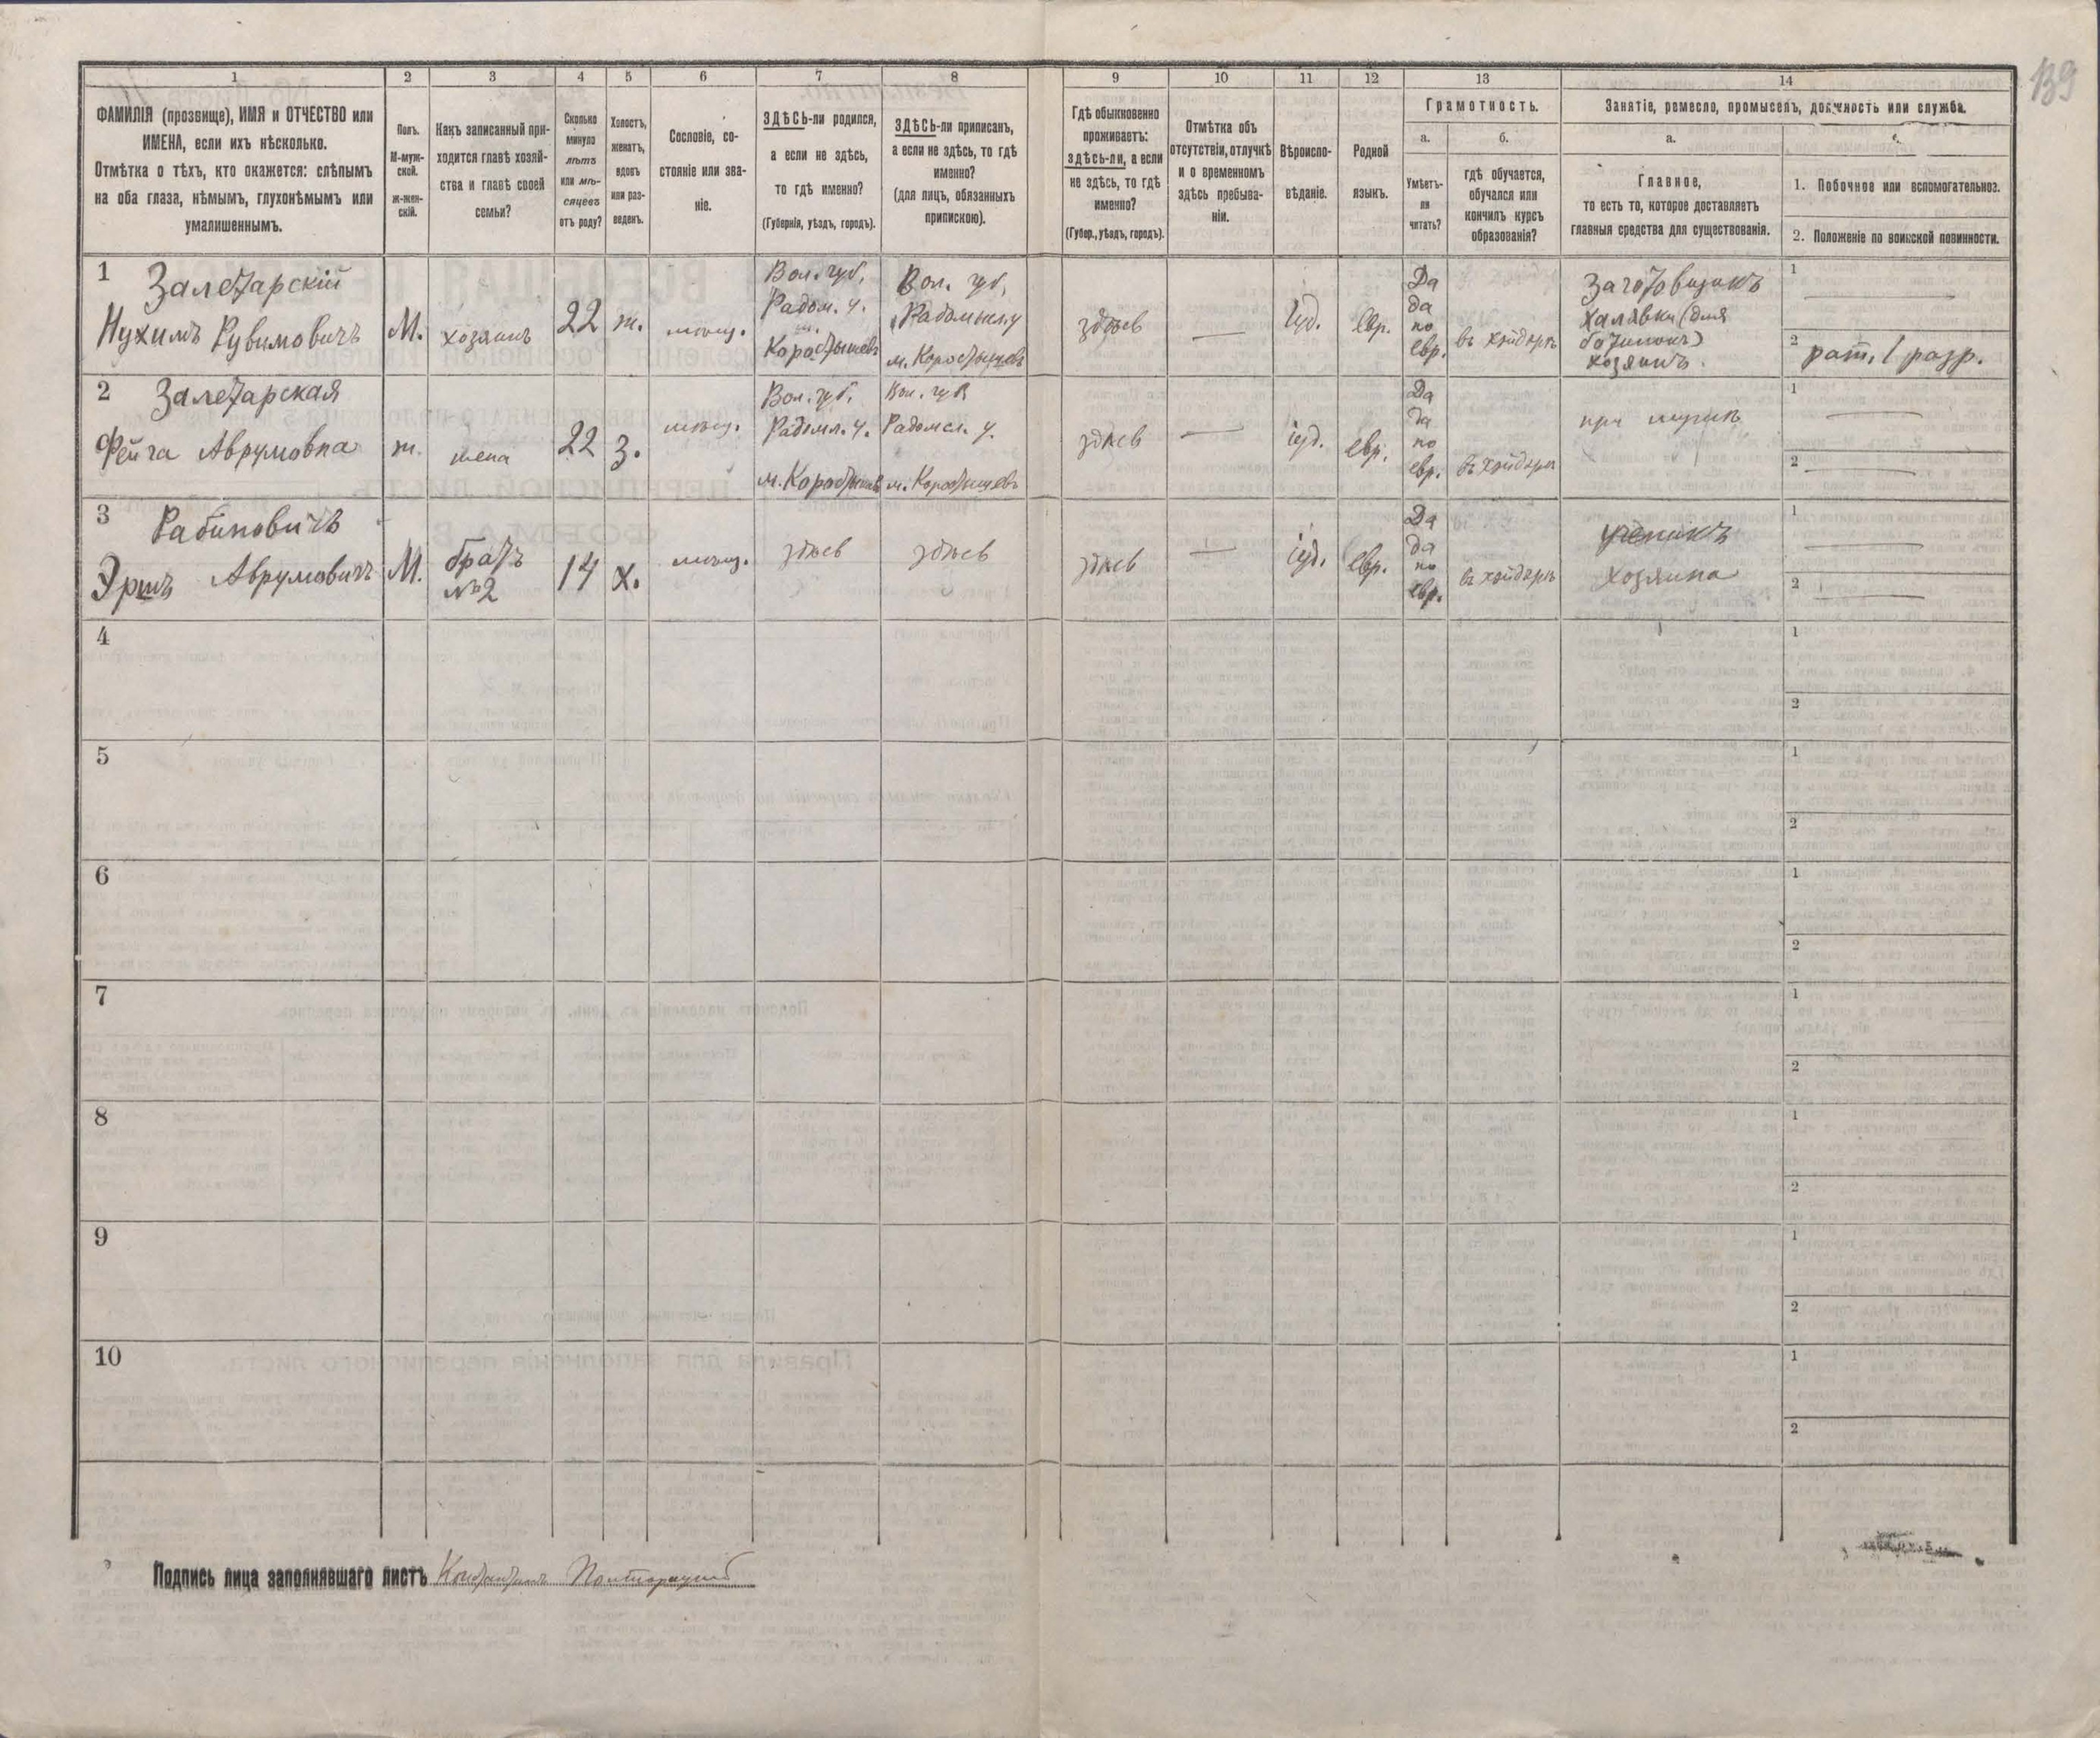 139
1 2 3 4 5 6 7 8 9 10 11 12 13 14
ФАМИЛІЯ (прозвище), ИМЯ и ОТЧЕСТВО или
ИМЕНА, если ихъ нѣсколько.
Отмѣтка о тѣхъ, кто окажется: слѣпымъ
на оба глаза, нѣмымъ, глухонѣмымъ или
умалишеннымъ.
Полъ.
М-муж-
ской.
ж-жен-
скій.
Какъ записанный при-
ходится главѣ хозяй-
ства и главѣ своей
семьи?
Сколько
минуло
лѣтъ
или мѣ-
сяцевъ
отъ роду?
Холостъ,
женатъ,
вдовъ
или раз-
веденъ.
Сословіе, со-
стояніе или зва-
ніе.
ЗДѢСЬ-ли родился,
а если не здѣсь,
то гдѣ именно?
(Губернія, уѣздъ, городъ).
ЗДѢСЬ-ли приписанъ,
а если не здѣсь, то гдѣ
именно?
(для лицъ, обязанныхъ
припискою).
Гдѣ обыкновенно
проживаетъ:
здѣсь-ли, а если
не здѣсь, то гдѣ
именно?
(Губер., уѣздъ, городъ).
Отмѣтка объ
отсутствіи, отлучкѣ
и о временномъ
здѣсь пребыва-
ніи.
Вѣроиспо-
вѣданіе.
Родной
языкъ.
Грамотность.
а.
Умѣетъ-
ли
читать?
б.
гдѣ обучается,
обучался или
кончилъ курсъ
образованія?
Занятіе, ремесло, промыселъ, должность или служба.
а.
Главное,
то есть то, которое доставляетъ
главныя средства для существованія.
1. Побочное или вспомогательноз.
2. Положеніе по воинской повинности.
1
Залетарскій
Нухимъ Рувимовичъ
М.
хозяинъ
22
ж.
мѣщ.
Вол. губ.
Радом. у.
м.
Коростышевъ
Вол. губ.
Радомысл. у
м. Коростышевъ
здѣсь
Іуд.
Евр.
Да
да
по
евр.
въ хейдерѣ
Заготовщикъ
халявки (для
ботинокъ)
хозяинъ.
1
2
рат. 1 разр.
2
Залетарская
Фейга Аврумовна
ж.
жена
22
З.
мѣщ.
Вол. губ.
Радомл. у.
м. Коростышевъ
Вол. губ
Радомсл. у.
м. Коростышевъ
здѣсь
іуд.
евр.
Да
да
по
евр.
въ хейдерѣ
при мужѣ
1
2
3
Рабиновичъ
Эршъ Аврумовичъ
М.
братъ
№2
14
х.
мѣщ.
здѣсь
здѣсь
здѣсь
іуд.
евр.
Да
да
по
евр.
въ хейдерѣ
ученикъ
хозяина
1
2
4
1
2
5
1
2
6
1
2
7
1
2
8
1
2
9
1
2
10
1
2
Подпись лица заполнявшаго листъ Константинъ